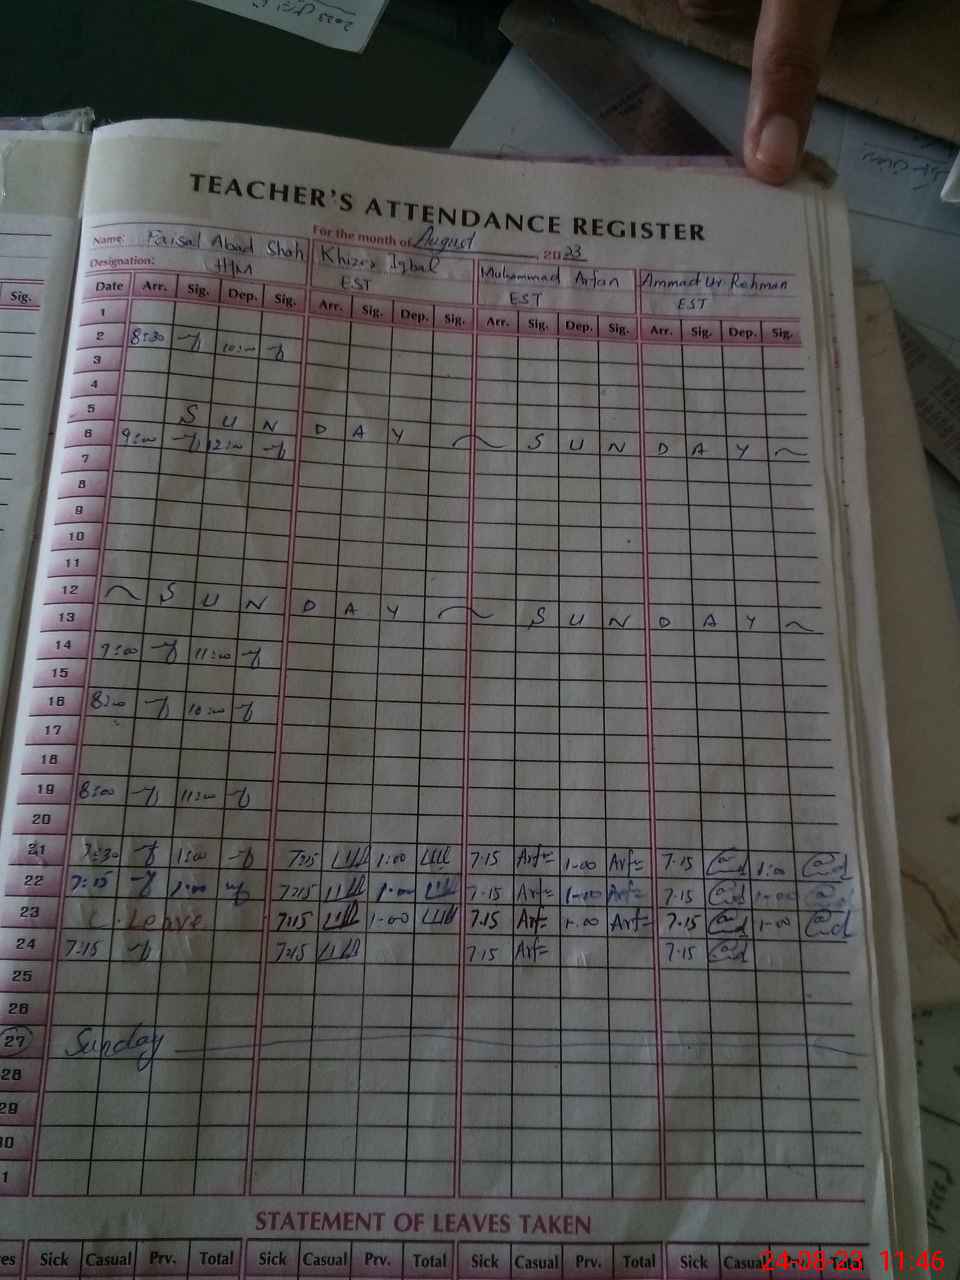 TEACHER'S ATTENDANCE REGISTER
For the month of August, 2023
Name: Faisal Abad Shah Khizer Iqbal Muhammad Arfan Ammad Ur Rehman
Designation: HM EST EST EST
Sig. Date Arr. Sig. Dep. Sig. Arr. Sig. Dep. Sig. Arr. Sig. Dep. Sig. Arr. Sig. Dep. Sig.
1
2 8:30 10:00
3
4
5
6 S U N D A Y S U N D A Y
9:00 12:00
7
8
9
10
11
12
13 S U N D A Y S U N D A Y
14 9:00 11:00
15
16 8:00 10:00
17
18
19 8:00 11:00
20
21 7:30 1:00 7:15 1:00 7.15 Arf 1-00 Arf 7.15 1:00
22 7:15 1:00 7:15 1:00 7.15 Arf 1-00 Arf 7.15 1-00
23 C. Leave 7:15 1-00 7.15 Arf 1-00 Arf 7.15 1-00
24 7:15 7:15 7.15 Arf 7.15
25
26
27 Sunday
28
29
30
1
STATEMENT OF LEAVES TAKEN
es Sick Casual Prv. Total Sick Casual Prv. Total Sick Casual Prv. Total Sick Casual Prv. Total
24-08-23 11:46